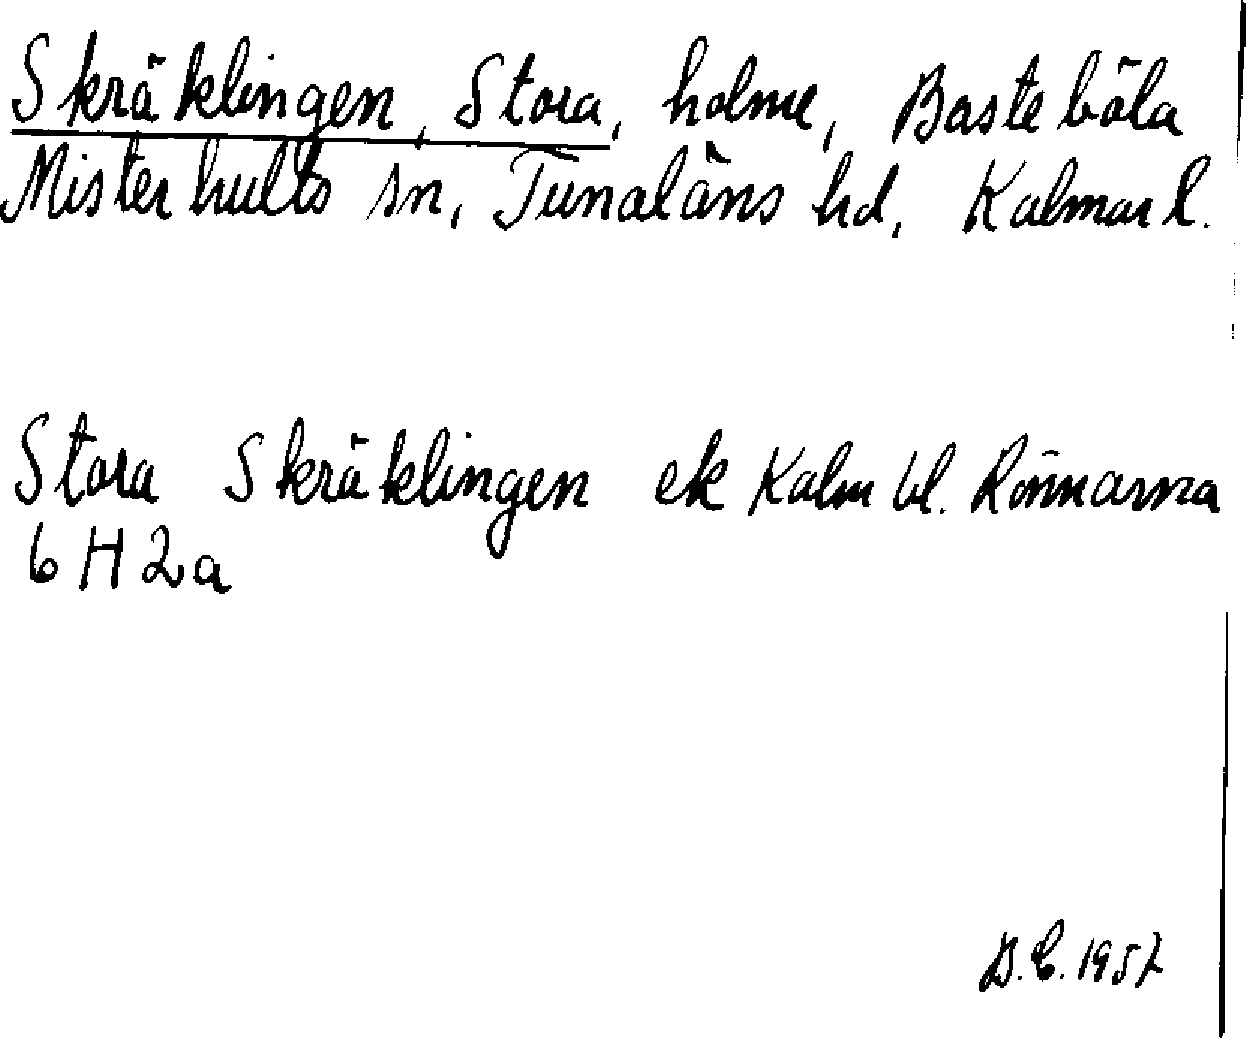 Skräklingen, Stora, holme, Basteböla
Misterhults sn, Tunaläns hd, Kalmar l.
Stora Skräklingen ek Kalm bl. Rönnarna
6 H 2a
B.E. 1957